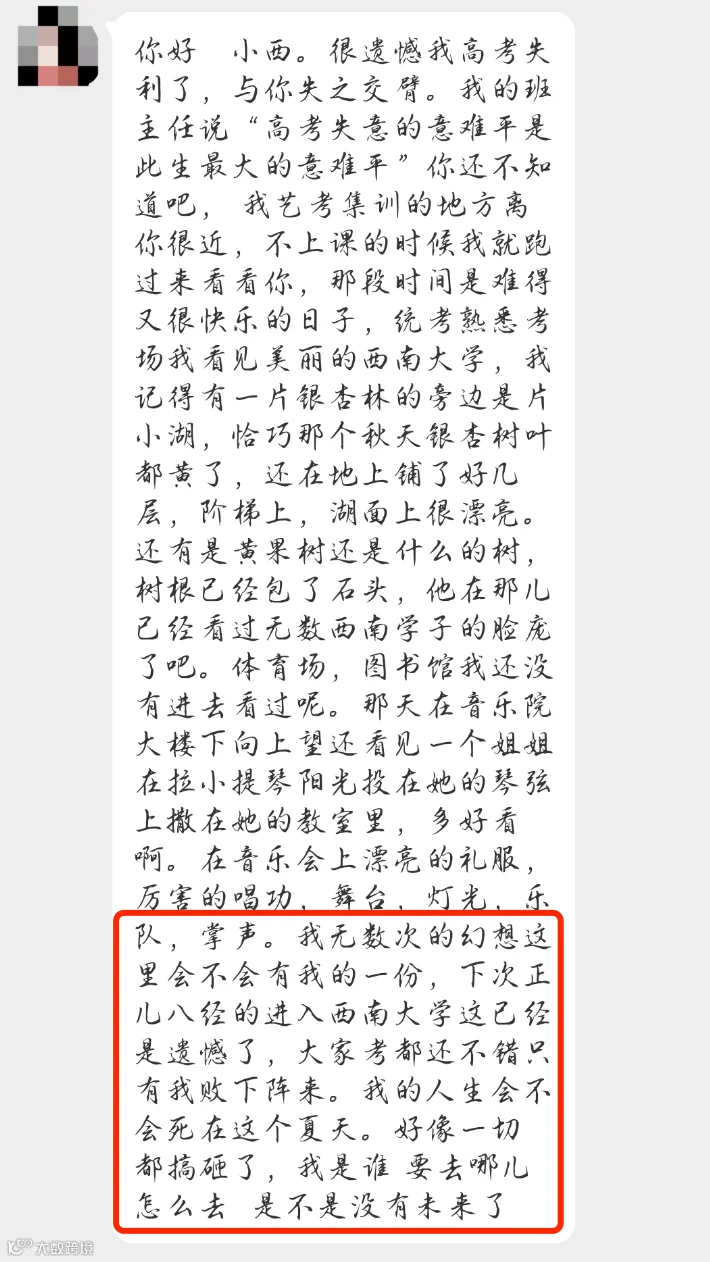 你好 小西。很遗憾我高考失
利了，与你失之交臂。我的班
主任说“高考失意的意难平是
此生最大的意难平”你还不知
道吧， 我艺考集训的地方离
你很近，不上课的时候我就跑
过来看看你，那段时间是难得
又很快乐的日子，统考熟悉考
场我看见美丽的西南大学，我
记得有一片银杏林的旁边是片
小湖，恰巧那个秋天银杏树叶
都黄了，还在地上铺了好几
层，阶梯上，湖面上很漂亮。
还有是黄果树还是什么的树，
树根已经包了石头，他在那儿
已经看过无数西南学子的脸庞
了吧。体育场，图书馆我还没
有进去看过呢。那天在音乐院
大楼下向上望还看见一个姐姐
在拉小提琴阳光投在她的琴弦
上撒在她的教室里，多好看
啊。在音乐会上漂亮的礼服，
厉害的唱功，舞台，灯光，乐
队，掌声。我无数次的幻想这
里会不会有我的一份，下次正
儿八经的进入西南大学这已经
是遗憾了，大家考都还不错只
有我败下阵来。我的人生会不
会死在这个夏天。好像一切
都搞砸了，我是谁 要去哪儿
怎么去 是不是没有未来了
大数跨境